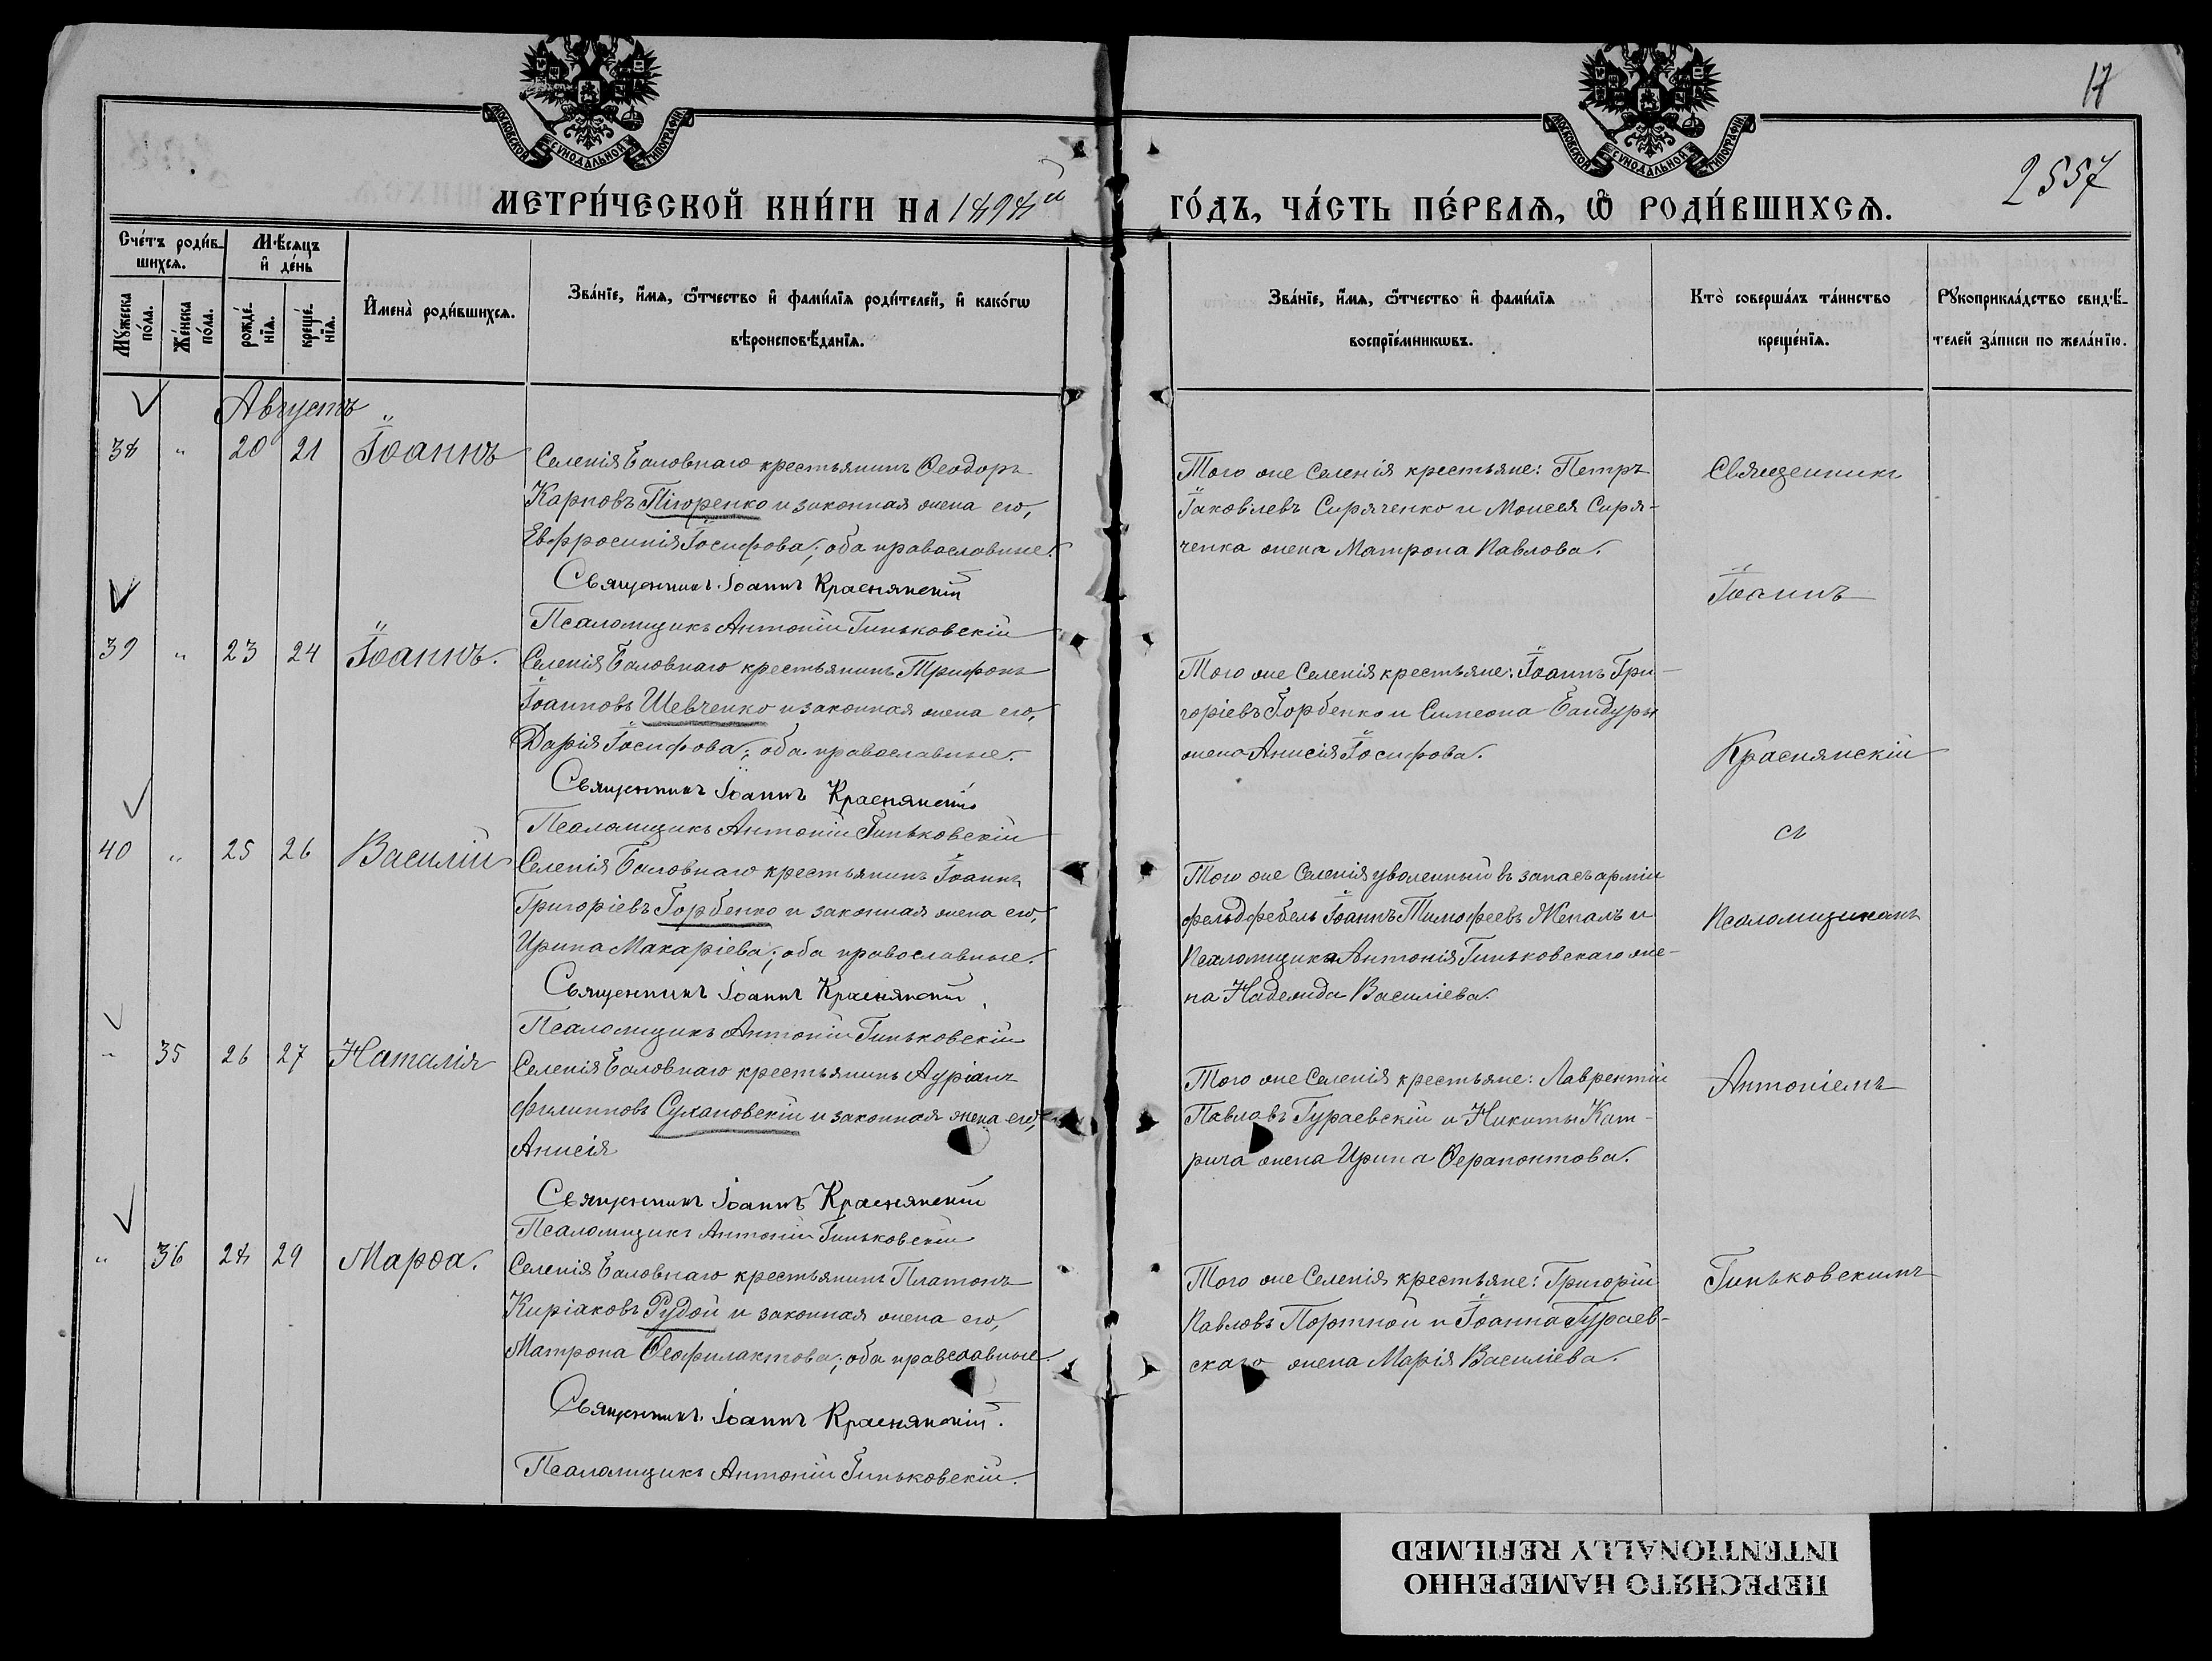 17
2557
МОСКОВСКОЙ СѴНОДАЛЬНОЙ ТИПОГРАФІИ
МОСКОВСКОЙ СѴНОДАЛЬНОЙ ТИПОГРАФІИ
МЕТРИ́ЧЕСКОЙ КНИ́ГИ НА 1898й ГО́ДЪ, ЧА́СТЬ ПЕ́РВАѦ, Ѿ РОДИ́ВШИХСѦ.
Сче́тъ роди́в-
шихсѧ.
Мѣ́сѧцъ
и҆ де́нь
Мꙋ́жеска
по́ла.
Же́нска
по́ла.
рожде́-
нїѧ.
креще́-
нїѧ.
И҆мена̀ роди́вшихсѧ.
Зва́нїе, и҆́мѧ, ѻ҆́тчество и҆ фами́лїѧ роди́телей, и҆ како́гѡ
вѣроисповѣ́данїѧ.
Зва́нїе, и҆́мѧ, ѻ҆́тчество и҆ фами́лїѧ
воспрїе́мникѡвъ.
Кто̀ соверша́лъ та́инство
креще́нїѧ.
Рꙋкоприкла́дство свидѣ́-
телей за́писи по жела́нїю.
Августъ
38 " 20 21 Іоаннъ
Селенія Баловнаго крестьянинъ Ѳеодоръ
Карповъ Пігоренко и законная жена его,
Евфросинія Іосифова; оба православные.
Священникъ Іоаннъ Краснянскій
Псаломщикъ Антоній Гиньковскій
Того же Селенія крестьяне: Петръ
Іаковлевъ Сиряченко и Моисея Сиря-
ченка жена Матрона Павлова.
Священникъ
Іоаннъ
39 " 23 24 Іоаннъ.
Селенія Баловнаго крестьянинъ Трифонъ
Іоанновъ Шевченко и законная жена его,
Дарія Іосифова; оба православные.
Священникъ Іоаннъ Краснянскій
Псаломщикъ Антоній Гиньковскій
Того же Селенія крестьяне: Іоаннъ Гри-
горіевъ Горбенко и Симеона Бандуры
жена Анисія Іосифова.
Краснянскій
съ
40 " 25 26 Василій
Селенія Баловнаго крестьянинъ Іоаннъ
Григоріевъ Горбенко и законная жена его,
Ирина Макаріева; оба православные.
Священникъ Іоаннъ Краснянскій
Псаломщикъ Антоній Гиньковскій
Того же Селенія уволенный въ запасъ арміи
фельдфебель Іоаннъ Тимофеевъ Жекалъ и
Псаломщика Антонія Гиньковскаго же-
на Надежда Василіева.
Псаломщикомъ
" 35 26 27 Наталія
Селенія Баловнаго крестьянинъ Ауріанъ
Филипповъ Сухановскій и законная жена его,
Анисія
Священникъ Іоаннъ Краснянскій
Псаломщикъ Антоній Гиньковскій
Того же Селенія крестьяне: Лаврентій
Павловъ Гураевскій и Никиты Кат-
рича жена Ирина Ѳерапонтова.
Антоніемъ
" 36 28 29 Марѳа.
Селенія Баловнаго крестьянинъ Платонъ
Киріаковъ Рудой и законная жена его,
Матрона Ѳеофилактова; оба православные.
Священникъ Іоаннъ Краснянскій.
Псаломщикъ Антоній Гиньковскій.
Того же Селенія крестьяне: Григорій
Павловъ Портной и Іоанна Гураев-
скаго жена Марія Василіева.
Гиньковскимъ
ПЕРЕСНЯТО НАМЕРЕННО
INTENTIONALLY REFILMED